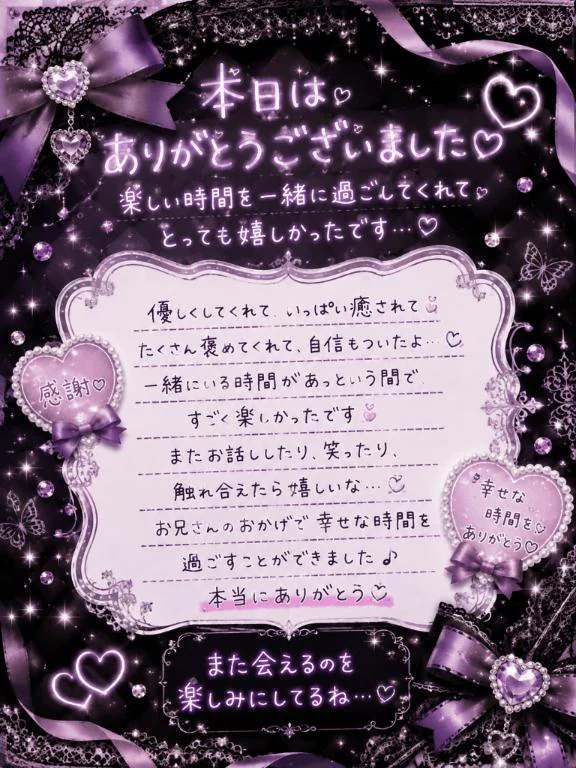 本日は♡
ありがとうございました♡
楽しい時間を一緒に過ごしてくれて♡
とっても嬉しかったです…♡
優しくしてくれて、いっぱい癒されて
たくさん褒めてくれて、自信もついたよ…♡
一緒にいる時間があっという間で、
すごく楽しかったです
またお話ししたり、笑ったり、
触れ合えたら嬉しいな…♡
お兄さんのおかげで幸せな時間を
過ごすことができました♪
本当にありがとう♡
感謝♡
幸せな
時間を♡
ありがとう♡
また会えるのを
楽しみにしてるね…♡